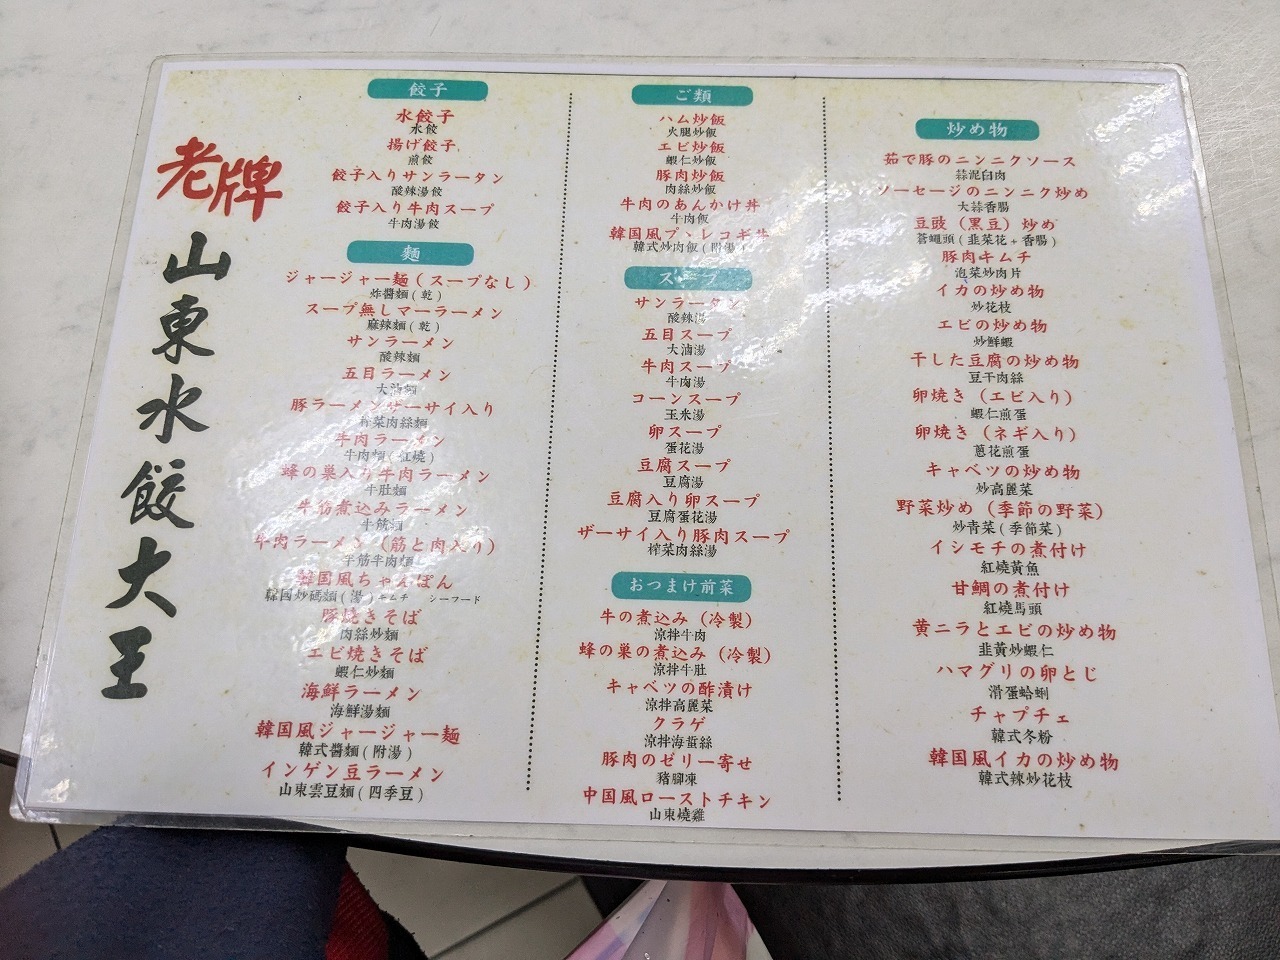 老牌
山東水餃大王
餃子
水餃子
水餃
揚げ餃子
煎餃
餃子入りサンラータン
酸辣湯餃
餃子入り牛肉スープ
牛肉湯餃
麵
ジャージャー麵(スープなし)
炸醬麵(乾)
スープ無しマーラーメン
麻辣麵(乾)
サンラーメン
酸辣麵
五目ラーメン
大滷麵
豚ラーメンザーサイ入り
榨菜肉絲麵
牛肉ラーメン
牛肉麵(紅燒)
蜂の巣入り牛肉ラーメン
牛肚麵
牛筋煮込みラーメン
牛筋麵
牛肉ラーメン(筋と肉入り)
半筋半肉麵
韓国風ちゃんぽん
韓国炒碼麵(湯)キムチ シーフード
豚焼きそば
肉絲炒麵
エビ焼きそば
蝦仁炒麵
海鮮ラーメン
海鮮湯麵
韓国風ジャージャー麵
韓式醬麵(附湯)
インゲン豆ラーメン
山東雲豆麵(四季豆)
ご類
ハム炒飯
火腿炒飯
エビ炒飯
蝦仁炒飯
豚肉炒飯
肉絲炒飯
牛肉のあんかけ丼
牛肉飯
韓国風プゥレコギ丼
韓式炒肉飯(附湯)
スープ
サンラータン
酸辣湯
五目スープ
大滷湯
牛肉スープ
牛肉湯
コーンスープ
玉米湯
卵スープ
蛋花湯
豆腐スープ
豆腐湯
豆腐入り卵スープ
豆腐蛋花湯
ザーサイ入り豚肉スープ
榨菜肉絲湯
おつまけ前菜
牛の煮込み(冷製)
涼拌牛肉
蜂の巣の煮込み(冷製)
涼拌牛肚
キャベツの酢漬け
涼拌高麗菜
クラゲ
涼拌海蜇絲
豚肉のゼリー寄せ
豬腳凍
中国風ローストチキン
山東燒雞
炒め物
茹で豚のニンニクソース
蒜泥白肉
ソーセージのニンニク炒め
大蒜香腸
豆豉(黒豆)炒め
蒼蠅頭(韭菜花+香腸)
豚肉キムチ
泡菜炒肉片
イカの炒め物
炒花枝
エビの炒め物
炒鮮蝦
干した豆腐の炒め物
豆干肉絲
卵焼き(エビ入り)
蝦仁煎蛋
卵焼き(ネギ入り)
蔥花煎蛋
キャベツの炒め物
炒高麗菜
野菜炒め(季節の野菜)
炒青菜(季節菜)
イシモチの煮付け
紅燒黃魚
甘鯛の煮付け
紅燒馬頭
黄ニラとエビの炒め物
韭黃炒蝦仁
ハマグリの卵とじ
滑蛋蛤蜊
チャプチェ
韓式冬粉
韓国風イカの炒め物
韓式辣炒花枝